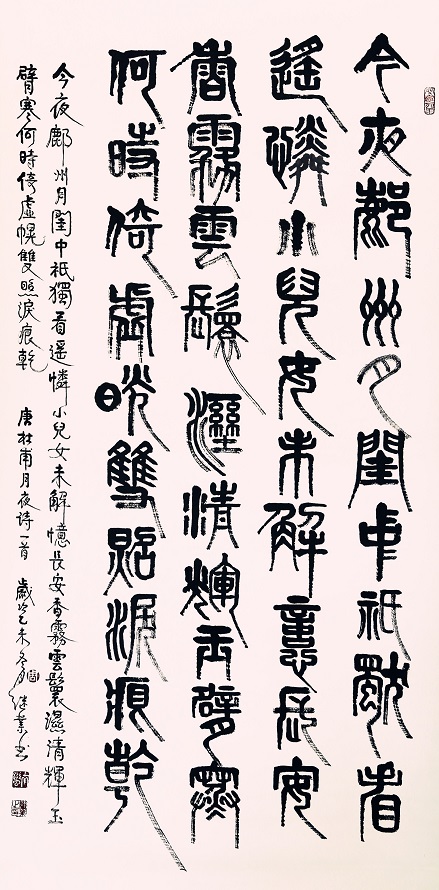 今夜鄜州月閨中祇獨看
遙憐小兒女未解憶長安
香霧雲鬟濕清輝玉臂寒
何時倚虛幌雙照淚痕乾
今夜鄜州月閨中祇獨看遥憐小兒女未解憶長安香霧雲鬟濕清輝玉
臂寒何時倚虛幌雙照淚痕乾 唐杜甫月夜诗一首 歲乙未冬 继業书